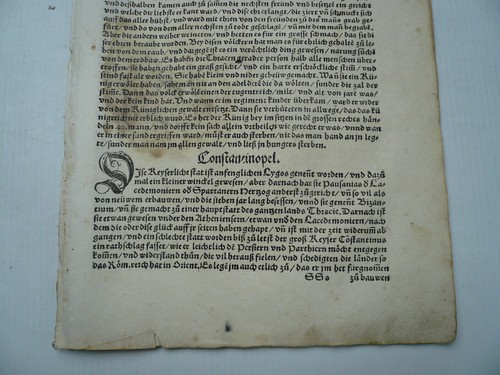 deshalbẽ kamen auch zů samen die nechsten freünd vnd
vnd welche die liebste erkant ward / vnd die scheltlange / die ziert vñ schmuckt sich
auff das aller hübst / vnd ward mit ehren von den freünden zů des mañs grab
fürt / vnd do von dem aller nechsten zů tode geschlagẽ / vñ mit dem mañ begrabẽ
Aber die andern wider weineten / vnd hetten es für ein grosse schmach / das sie di
ser ehren beraubt wurden. Bey disen völckern hat man es für hüsch gehaltẽ zů le
ben von dem raub / vnd dargegẽ ist es ein verächtlich ding gewesen / narung sůchẽ
von dem erdbaw. Es habẽn die Thracen gerader person halb alle menschen über
troffen / sie haben gehabt ein graß gesicht / vnd ein harte erschöcklich stim / vnd
seind fast alt worden. Sie habẽ klein vnd nider geheüw gemacht. Wañ sie ein Kü
nig erwölet haben / sahe man nit an den adel der die da wölten / sunder die zal der
stimẽ. Dann das volck erwölet einen der tugentreich / milt / vnd alt von jare was /
vnd der kein kind hat. Vnd wann er im regiment kinder überkam / ward er wider
von dem Küniglichen gewalt entsetzt. Dann sie verhüteten in allwege / das das kü
nigreich nit erblich wurd. Es het der Künig bey im sitzen in dẽ grossen rechts händ
len 40. mann / vnd dorfft kein sich allein vrtheilen wie gerecht er was / vnnd wan
er in einer sund ergriffen ward / můst er auch sterben / nit das man hand an jn leg
te / sunder man nam jm allen gewalt / vnd ließ jn hungers sterben.
Constantinopel.
Dise Keyserliche stat ist anfengklichen Lygos genent worden / vnd dazů
mal ein kleiner winckel gewesen / aber darnach hat sie Pausanias d̃ La
cedemoniern od̃ Spartanern Hertzog anderst zůgericht / vñ so vil als
von neüwem erbauwen / vnd die sieben jar lang besessen / vnnd sie genent Bizan
tium / vñ sie gemacht zů einer haupt stat des gantzen lands Thracie. Darnach ist
sie etwan gewesen vnder den Atheniensern / etwan vnd̃ den Lacedemoniern / nach
dem die oder die glück auff jr seiten haben gehapt / vñ ist mit der zeit widerum ab
gangen / vnd ein schlechte statt worden biß zů letst der groß Keyser Costantinus
ein rathschlag fasset / wie er leichtlich dẽ Persiern vnd Parthiern möcht entgegen
kom̃en / vnd widerstand thůn / die vil herauß fielen / vnd schedigten die länder so
das Röm. reich hat in Orient. Es legẽ jm auch etlich zů / das er jm het fürgnom̃en
SSo zů bauwen